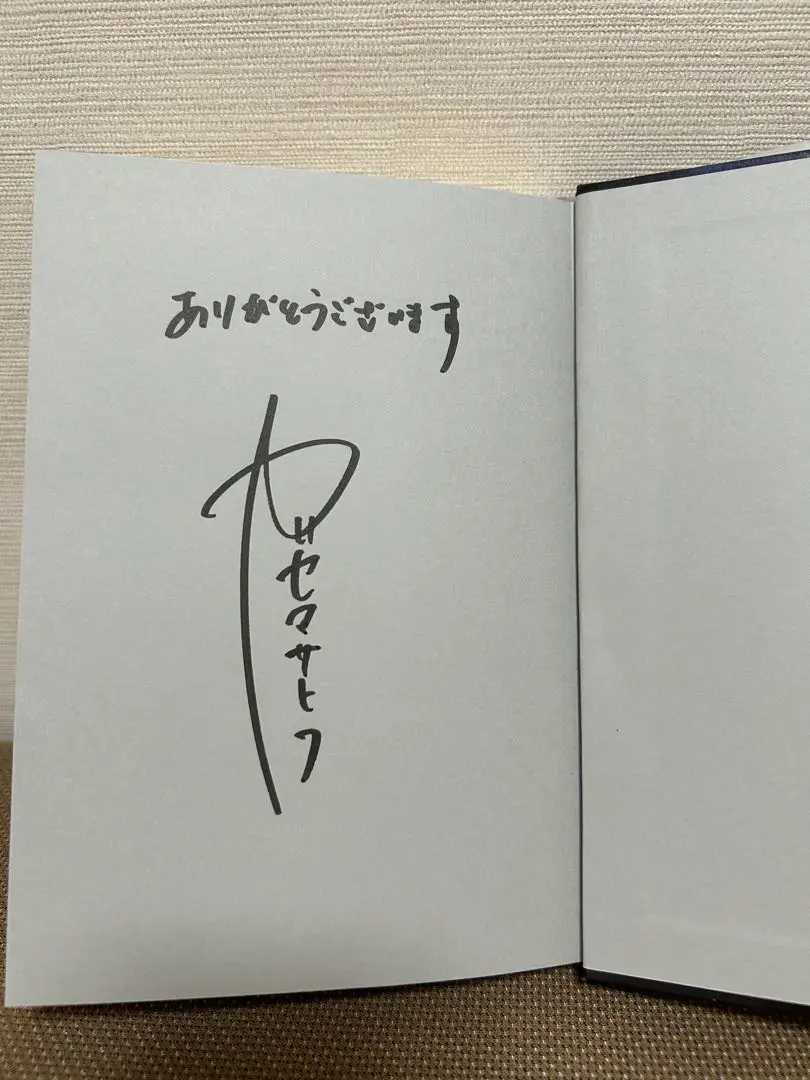 ありがとうございます
カツセマサヒコ